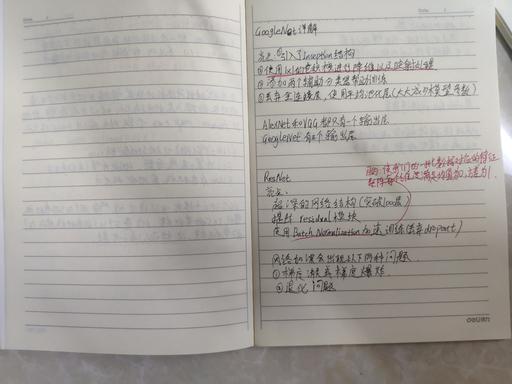 GoogleNet 详解
亮点：①引入了Inception结构
②使用1x1的卷积核进行降维以及映射处理
③添加两个辅助分类器帮助训练
④丢弃全连接层，使用平均池化层（大大减少模型参数）
AlexNet和VGG都只有一个输出层
GoogleNet有3个输出层
ResNet
目的：使我们的一批数据对应的特征
满足均值为0，方差为1.
亮点：
超深的网络结构（突破1000层）
提出residual模块
使用Batch Normalization加速训练（丢弃dropout）
网络加深会出现以下两种问题
①梯度消失或梯度爆炸
②退化问题
deli得力